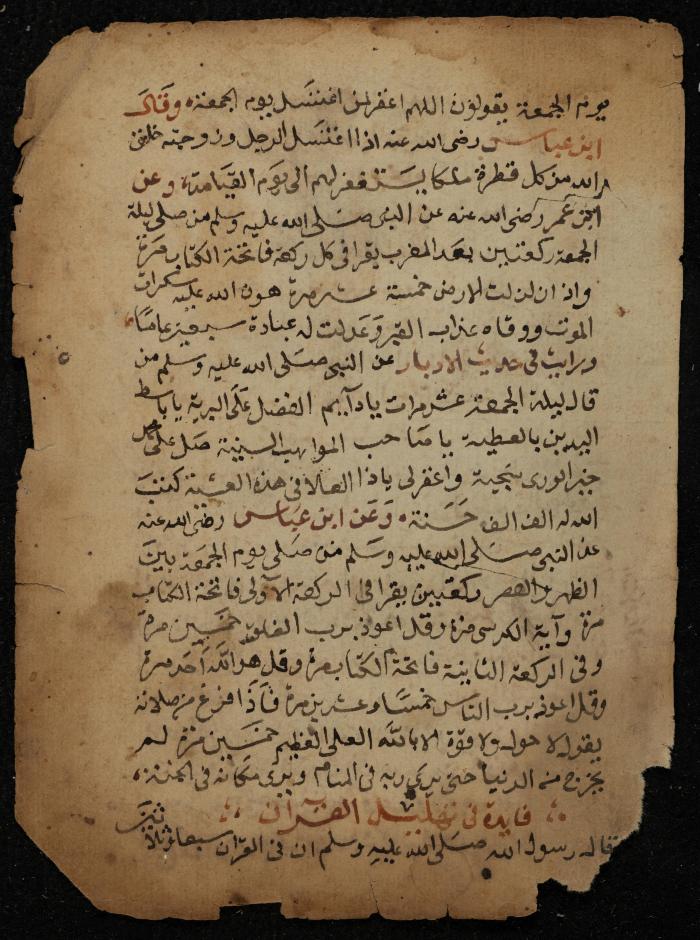 يوم الجمعة يقولون اللهم اغفر لمن اغتسل يوم الجمعة وقال
ابن عباس رضى الله عنه اذا اغتسل الرجل وزوجته خلق
الله من كل قطرة ملكا يستغفر لهم الى يوم القيامة وعن
ابن عمر رضى الله عنه عن النبى صلى الله عليه وسلم من صلى ليلة
الجمعة ركعتين بعد المغرب يقرا فى كل ركعة فاتحة الكتاب مرة
واذا زلزلت الارض خمسة عشر مرة هون الله عليه سكرات
الموت ووقاه عذاب القبر وعدلت له عبادة سبعين عاما
ورايت فى حديث الادبار عن النبى صلى الله عليه وسلم من
قال ليلة الجمعة عشر مرات يا دايم الفضل على البرية يا باسط
اليدين بالعطية يا صاحب المواهب السنية صل على محمد
خير الورى سجية واغفر لى يا ذا العلا فى هذه العشية كتب
الله له الف الف حسنة وعن ابن عباس رضى الله عنه
عن النبى صلى الله عليه وسلم من صلى يوم الجمعة بين
الظهر والعصر ركعتين يقرا فى الركعة الاولى فاتحة الكتاب
مرة وآية الكرسى مرة وقل اعوذ برب الفلق خمسين مرة
وفى الركعة الثانية فاتحة الكتاب مرة وقل هو الله احد مرة
وقل اعوذ برب الناس خمسا وعشرين مرة فاذا فرغ من صلاته
يقول لا حول ولا قوة الا بالله العلى العظيم خمسين مرة لم
يخرج من الدنيا حتى يرى ربه فى المنام ويرى مكانه فى الجنة
فايدة فى تهليل القرآن
قال رسول الله صلى الله عليه وسلم ان فى القرآن سبعا وثلاثين